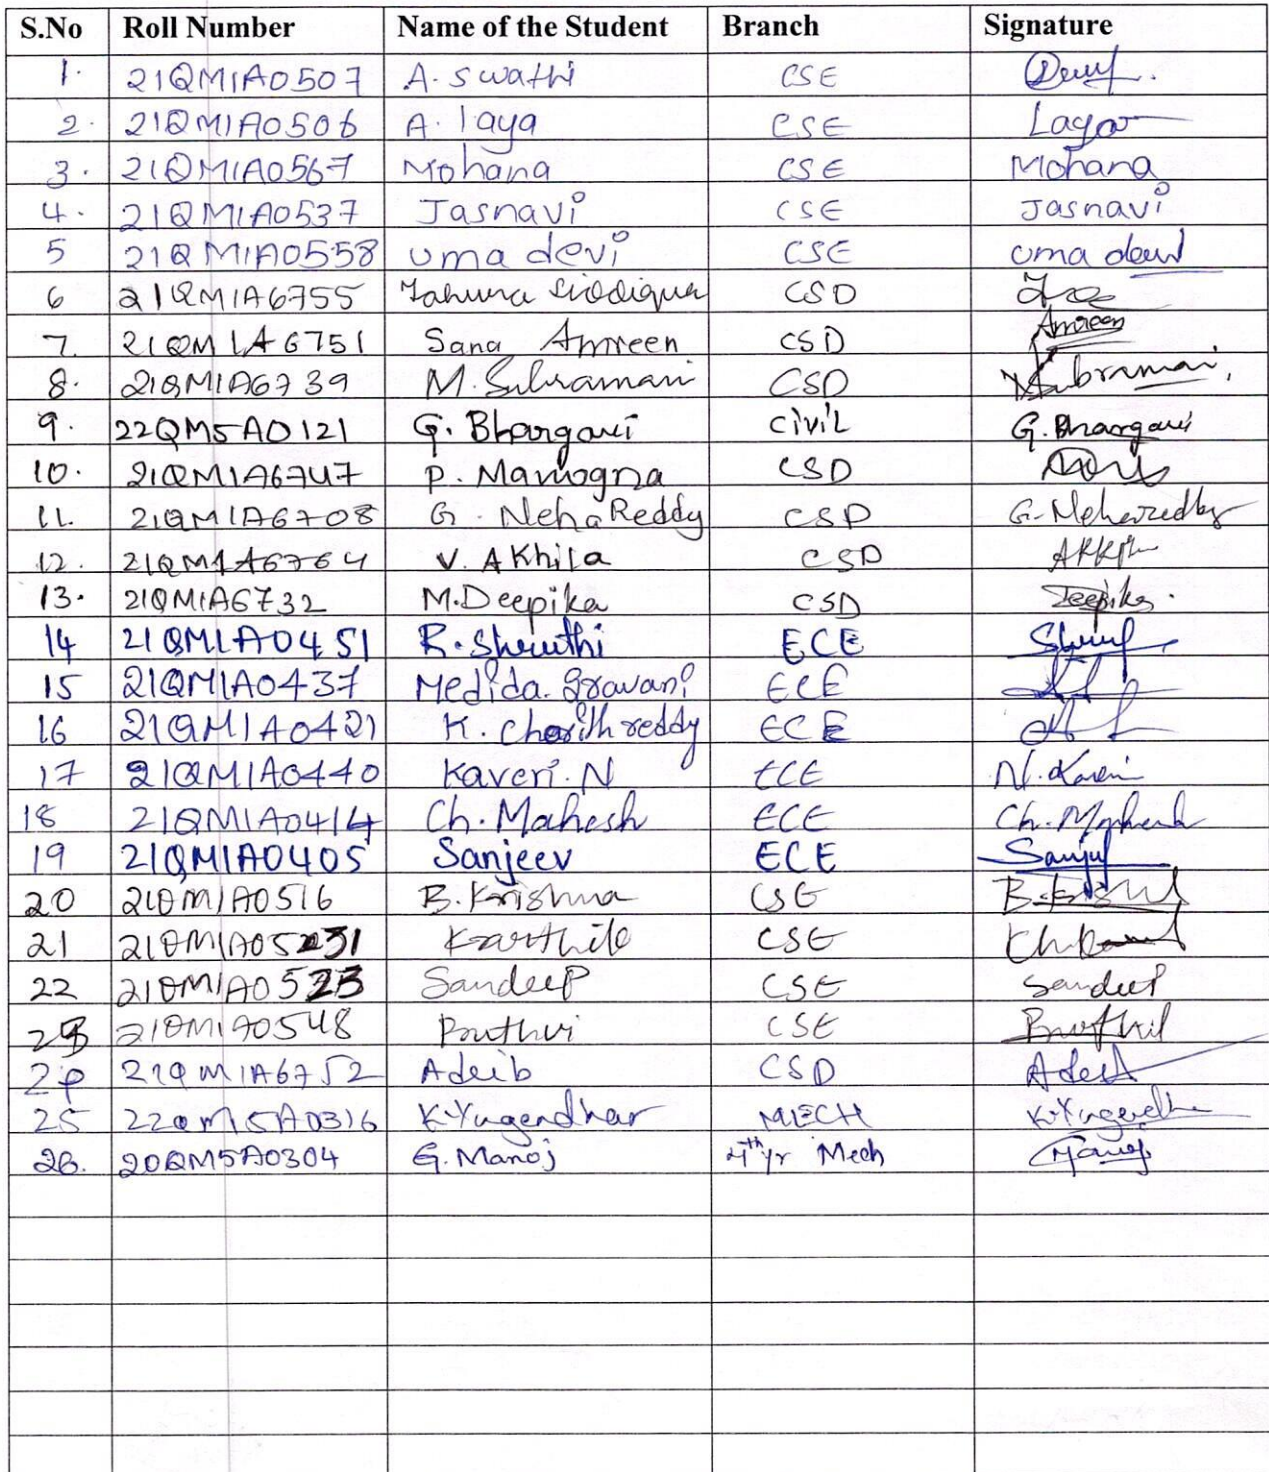 S.No Roll Number Name of the Student Branch Signature
1. 21QM1A0507 A. Swathi CSE
2. 21QM1A0506 A. laya CSE Laya
3. 21QM1A0567 Mohana CSE Mohana
4. 21QM1A0537 Jasnavi CSE Jasnavi
5 21QM1A0558 uma devi CSE uma devi
6 21QM1A6755 Tahura Siddiqua CSD
7. 21QM1A6751 Sana Amreen CSD Amreen
8. 21QM1A6739 M. Subramani CSD Subramani
9. 22QM5A0121 G. Bhargavi civil G. Bhargavi
10. 21QM1A6747 P. Manogna CSD
11. 21QM1A6708 G. Neha Reddy CSD G. Nehareddy
12. 21QM1A6764 V. Akhila CSD
13. 21QM1A6732 M.Deepika CSD Deepika.
14 21QM1A0451 R. Shruthi ECE
15 21QM1A0437 Medida. Sravani ECE
16 21QM1A0421 K. Charith reddy ECE
17 21QM1A0440 Kaveri. N ECE N. Kaveri
18 21QM1A0414 Ch. Mahesh ECE Ch. Mahesh
19 21QM1A0405 Sanjeev ECE
20 21QM1A0516 B. Krishna CSE
21 Karthik CSE
22 Sandeep CSE Sandeep
23 21QM1A0548 Pruthvi CSE
24 21QM1A6752 Adeib CSD Adeib
25 22QM5A0316 K.Yugendhar MECH K.Yugendhar
26. 20QM5A0304 G. Manoj 4th yr Mech Manoj